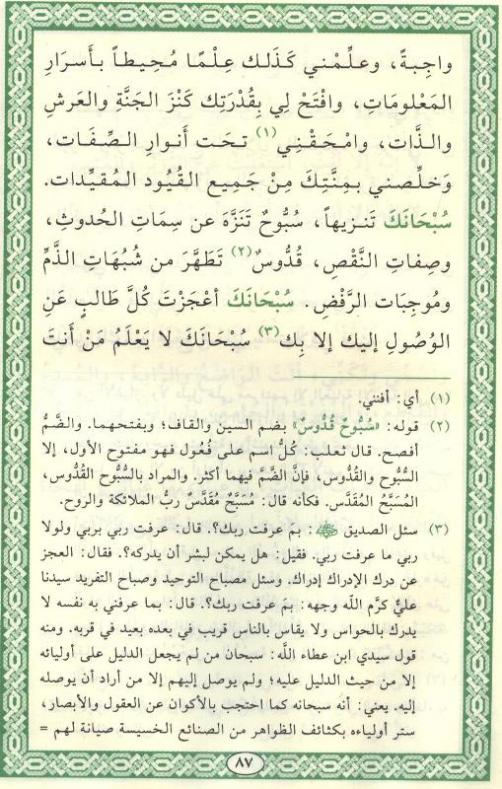 واجِبةً، وعلِّمْني كَذَلك عِلْمًا مُحِيطاً بأسرَارِ
المَعْلوماتِ، وافْتَحْ لِي بِقُدْرَتِك كَنْزَ الجَنَّةِ والعَرشِ
والذَّات، وامْحَقْنِي(١) تحَت أنوارِ الصِّفَات،
وَخلِّصني بمِنَّتِكَ مِنْ جَمِيع القُيُود المُقيِّدات.
سُبْحَانَكَ تَنـزيهاً، سُبُّوحٌ تَنَزَّهَ عن سِمَاتِ الحُدوثِ،
وصِفاتِ النَّقْصِ، قُدُّوسٌ(٢) تَطَهَّرَ من شُبُهَاتِ الذَّمِّ
ومُوجِبَات الرَّفْضِ. سُبْحَانَكَ أعْجَزْتَ كُلَّ طَالبٍ عَنِ
الوُصُولِ إليك إلا بِك(٣) سُبْحَانَكَ لا يَعْلَمُ مَنْ أنتَ
(١) أي: أفنني.
(٢) قوله: «سُبُّوحٌ قُدُّوسٌ» بضم السين والقاف؛ وبفتحهما. والضَّم
أفصح. قال ثعلب: كُلُّ اسم على فَعُول فهو مفتوح الأول، إلا
السُّبُّوح والقُدُّوس، فإنَّ الضَّم فيهما أكثر. والمراد بالسُّبُّوح القُدُّوس،
المُسَبَّحُ المُقَدَّس. فكأنه قال: مُسَبَّحٌ مُقَدَّسٌ ربُّ الملائكة والروح.
(٣) سئل الصديق ﵁: بمَ عرفت ربك؟. قال: عرفت ربي بربي ولولا
ربي ما عرفت ربي. فقيل: هل يمكن لبشر أن يدركه؟. فقال: العجز
عن درك الإدراك إدراك. وسئل مصباح التوحيد وصباح التفريد سيدنا
عليٌّ كرَّم اللّه وجهه: بمَ عرفت ربك؟. قال: بما عرفني به نفسه لا
يدرك بالحواس ولا يقاس بالناس قريب في بعده بعيد في قربه. ومنه
قول سيدي ابن عطاء اللّه: سبحان من لم يجعل الدليل على أوليائه
إلا من حيث الدليل عليه؛ ولم يوصل إليهم إلا من أراد أن يوصله
إليه. يعني: أنه سبحانه كما احتجب بالأكوان عن العقول والأبصار،
ستر أولياءه بكثائف الظواهر من الصنائع الخسيسة صيانة لهم =
٨٧